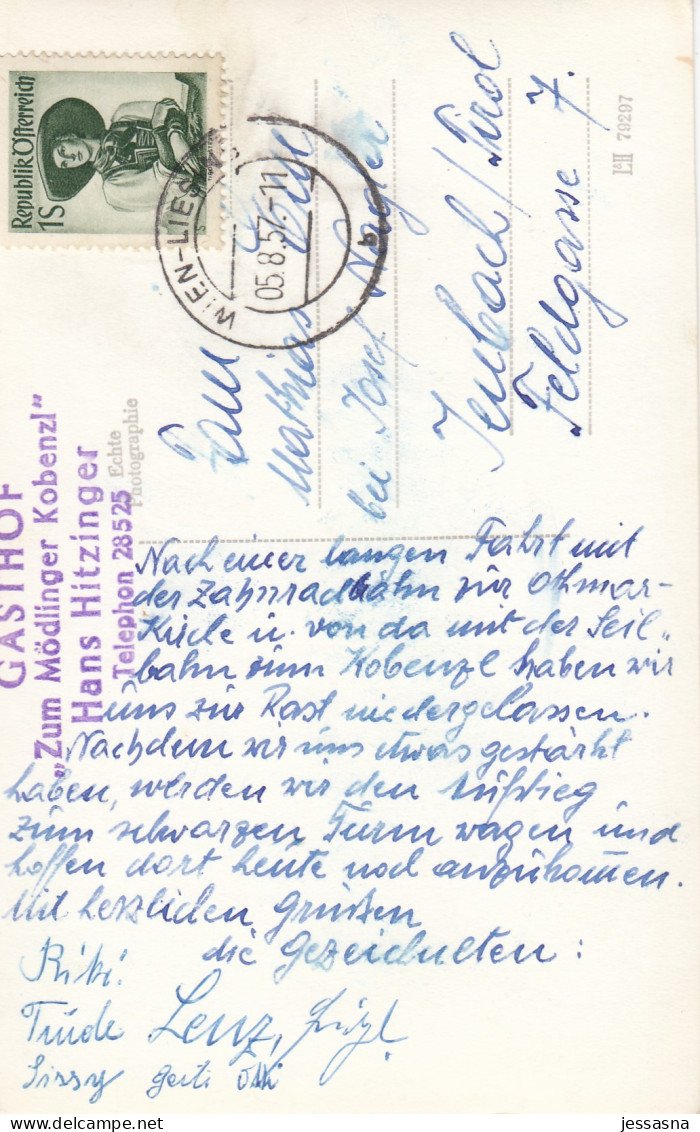 Republik Österreich
1S
WIEN-LIESING
05.8.57.-11
b
Fam.
Mathias
bei Josef
Jenbach/Tirol
Feldgasse 7.
79297
Echte
Photographie
GASTHOF
„Zum Mödlinger Kobenzl"
Hans Hitzinger
Telephon 28525
Nach einer langen Fahrt mit
der Zahnradbahn zur Othmar-
Kirche u. von da mit der Seil„
bahn zum Kobenzl haben wir
uns zur Rast niedergelassen.
Nachdem wir uns etwas gestärkt
haben, werden wir den Aufstieg
zum schwarzen Turm wagen und
hoffen dort heute noch anzukommen.
Mit herzlichen Grüßen
die Gezeichneten:
Riki.
Trude Lenz,
Sissy
jessasna